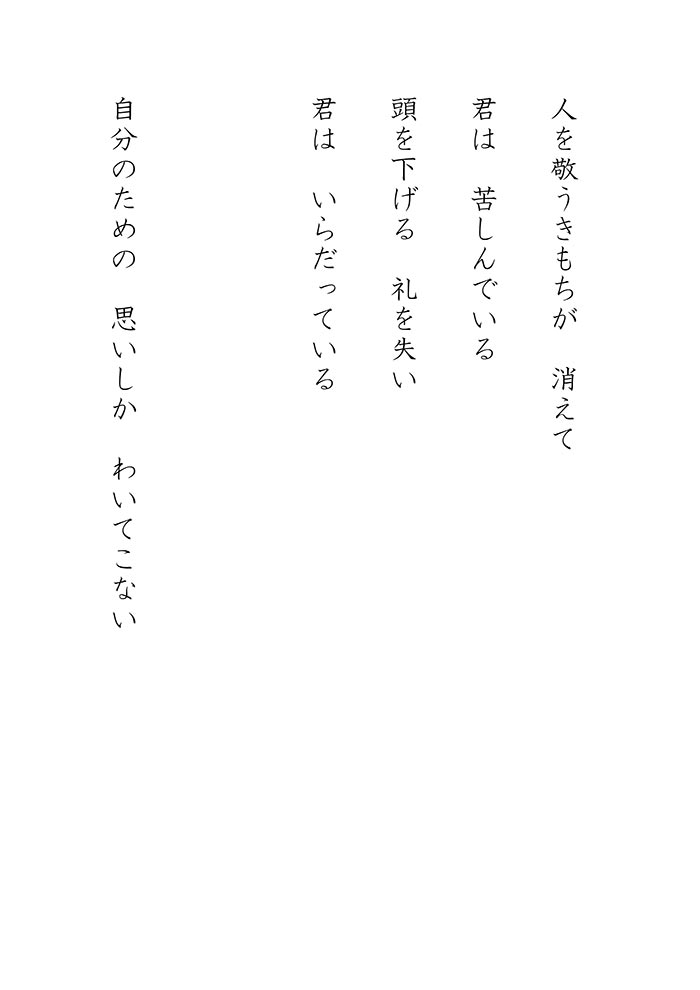 人を敬うきもちが　消えて
君は　苦しんでいる
頭を下げる　礼を失い
君は　いらだっている
自分のための　思いしか　わいてこない